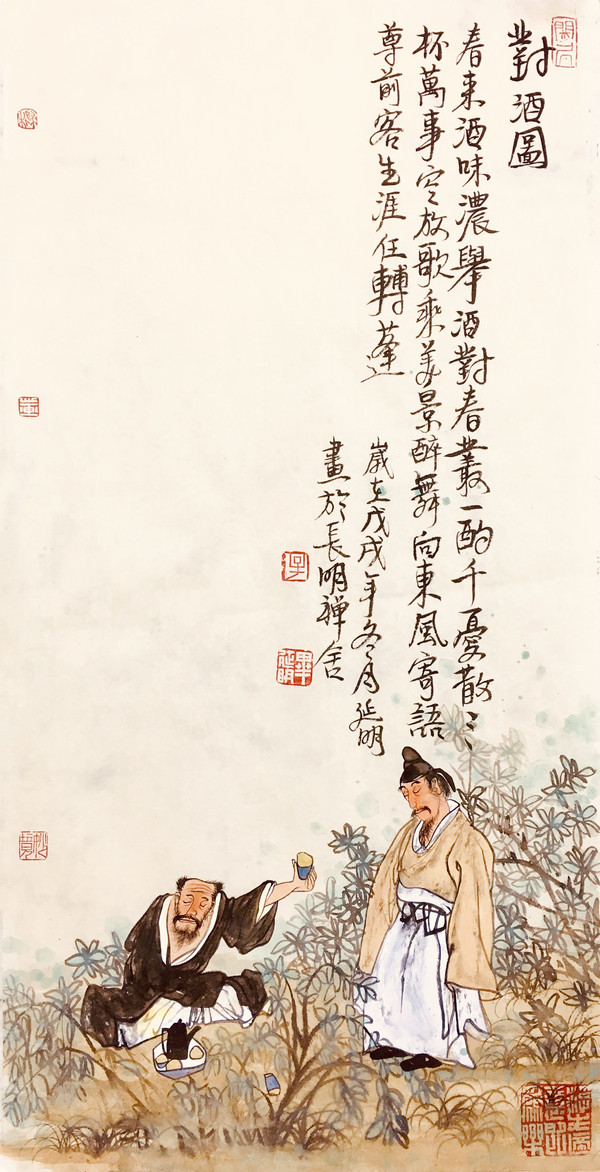 對酒圖
春来酒味濃舉酒對春叢一酌千憂散三
杯萬事空放歌乘美景醉舞向東風寄語
尊前客生涯任轉蓬
歲在戊戌年冬月延明
畫於長明禪舍
畢延明